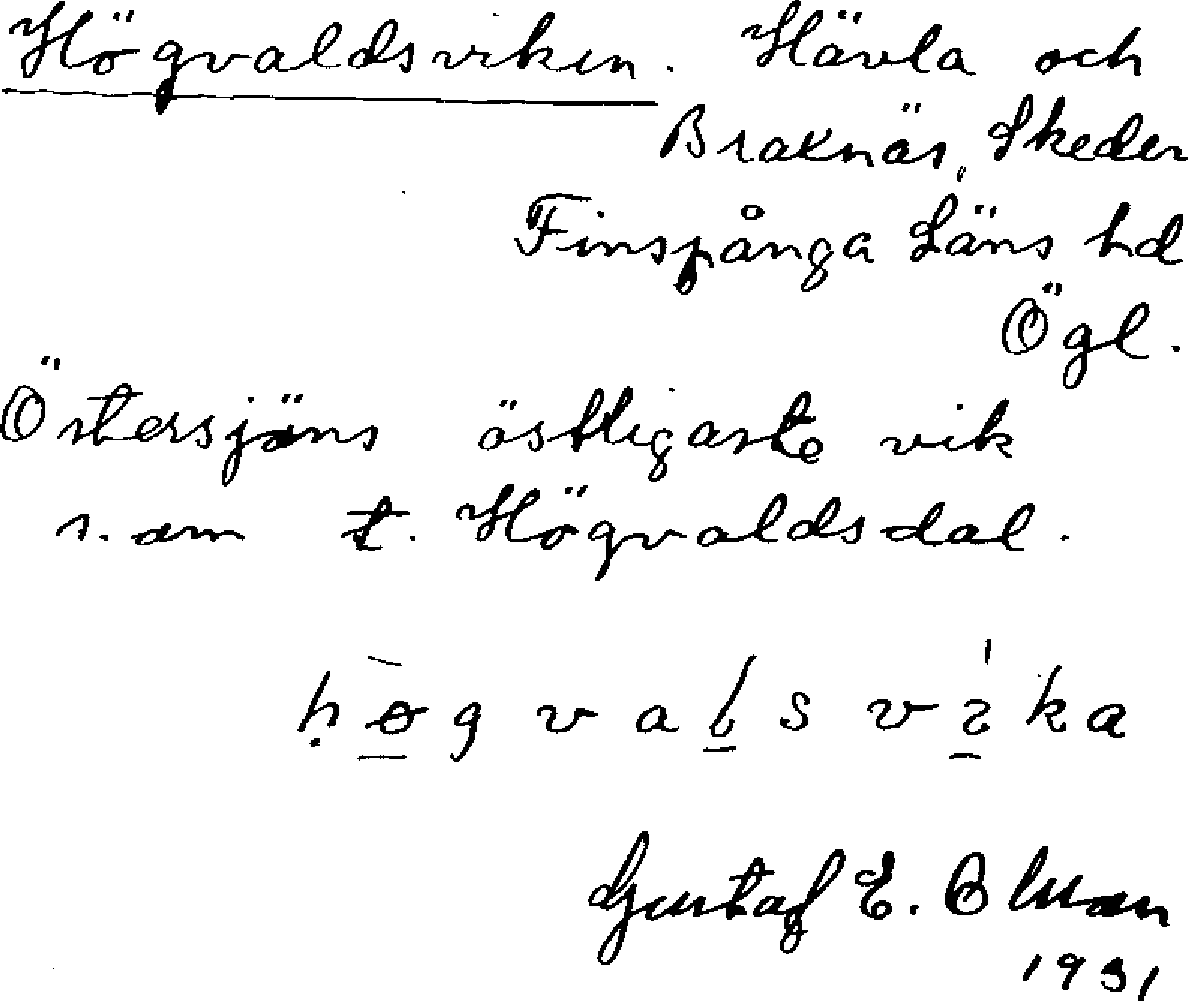 Högvaldsviken. Hävla och
Braxnäs, Skeder
Finspånga Läns hd
Ögl.
Östersjöns östligaste vik
s. om t. Högvaldsdal.
Gustaf E. Olsson
1931